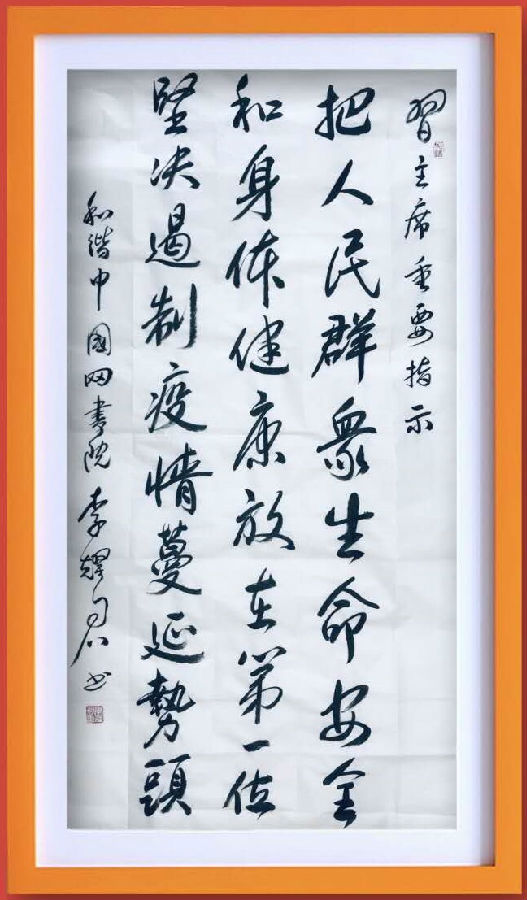 習主席重要指示
把人民群衆生命安全
和身体健康放在第一位
堅决遏制疫情蔓延勢頭
和谐中國网書院 李耀君书